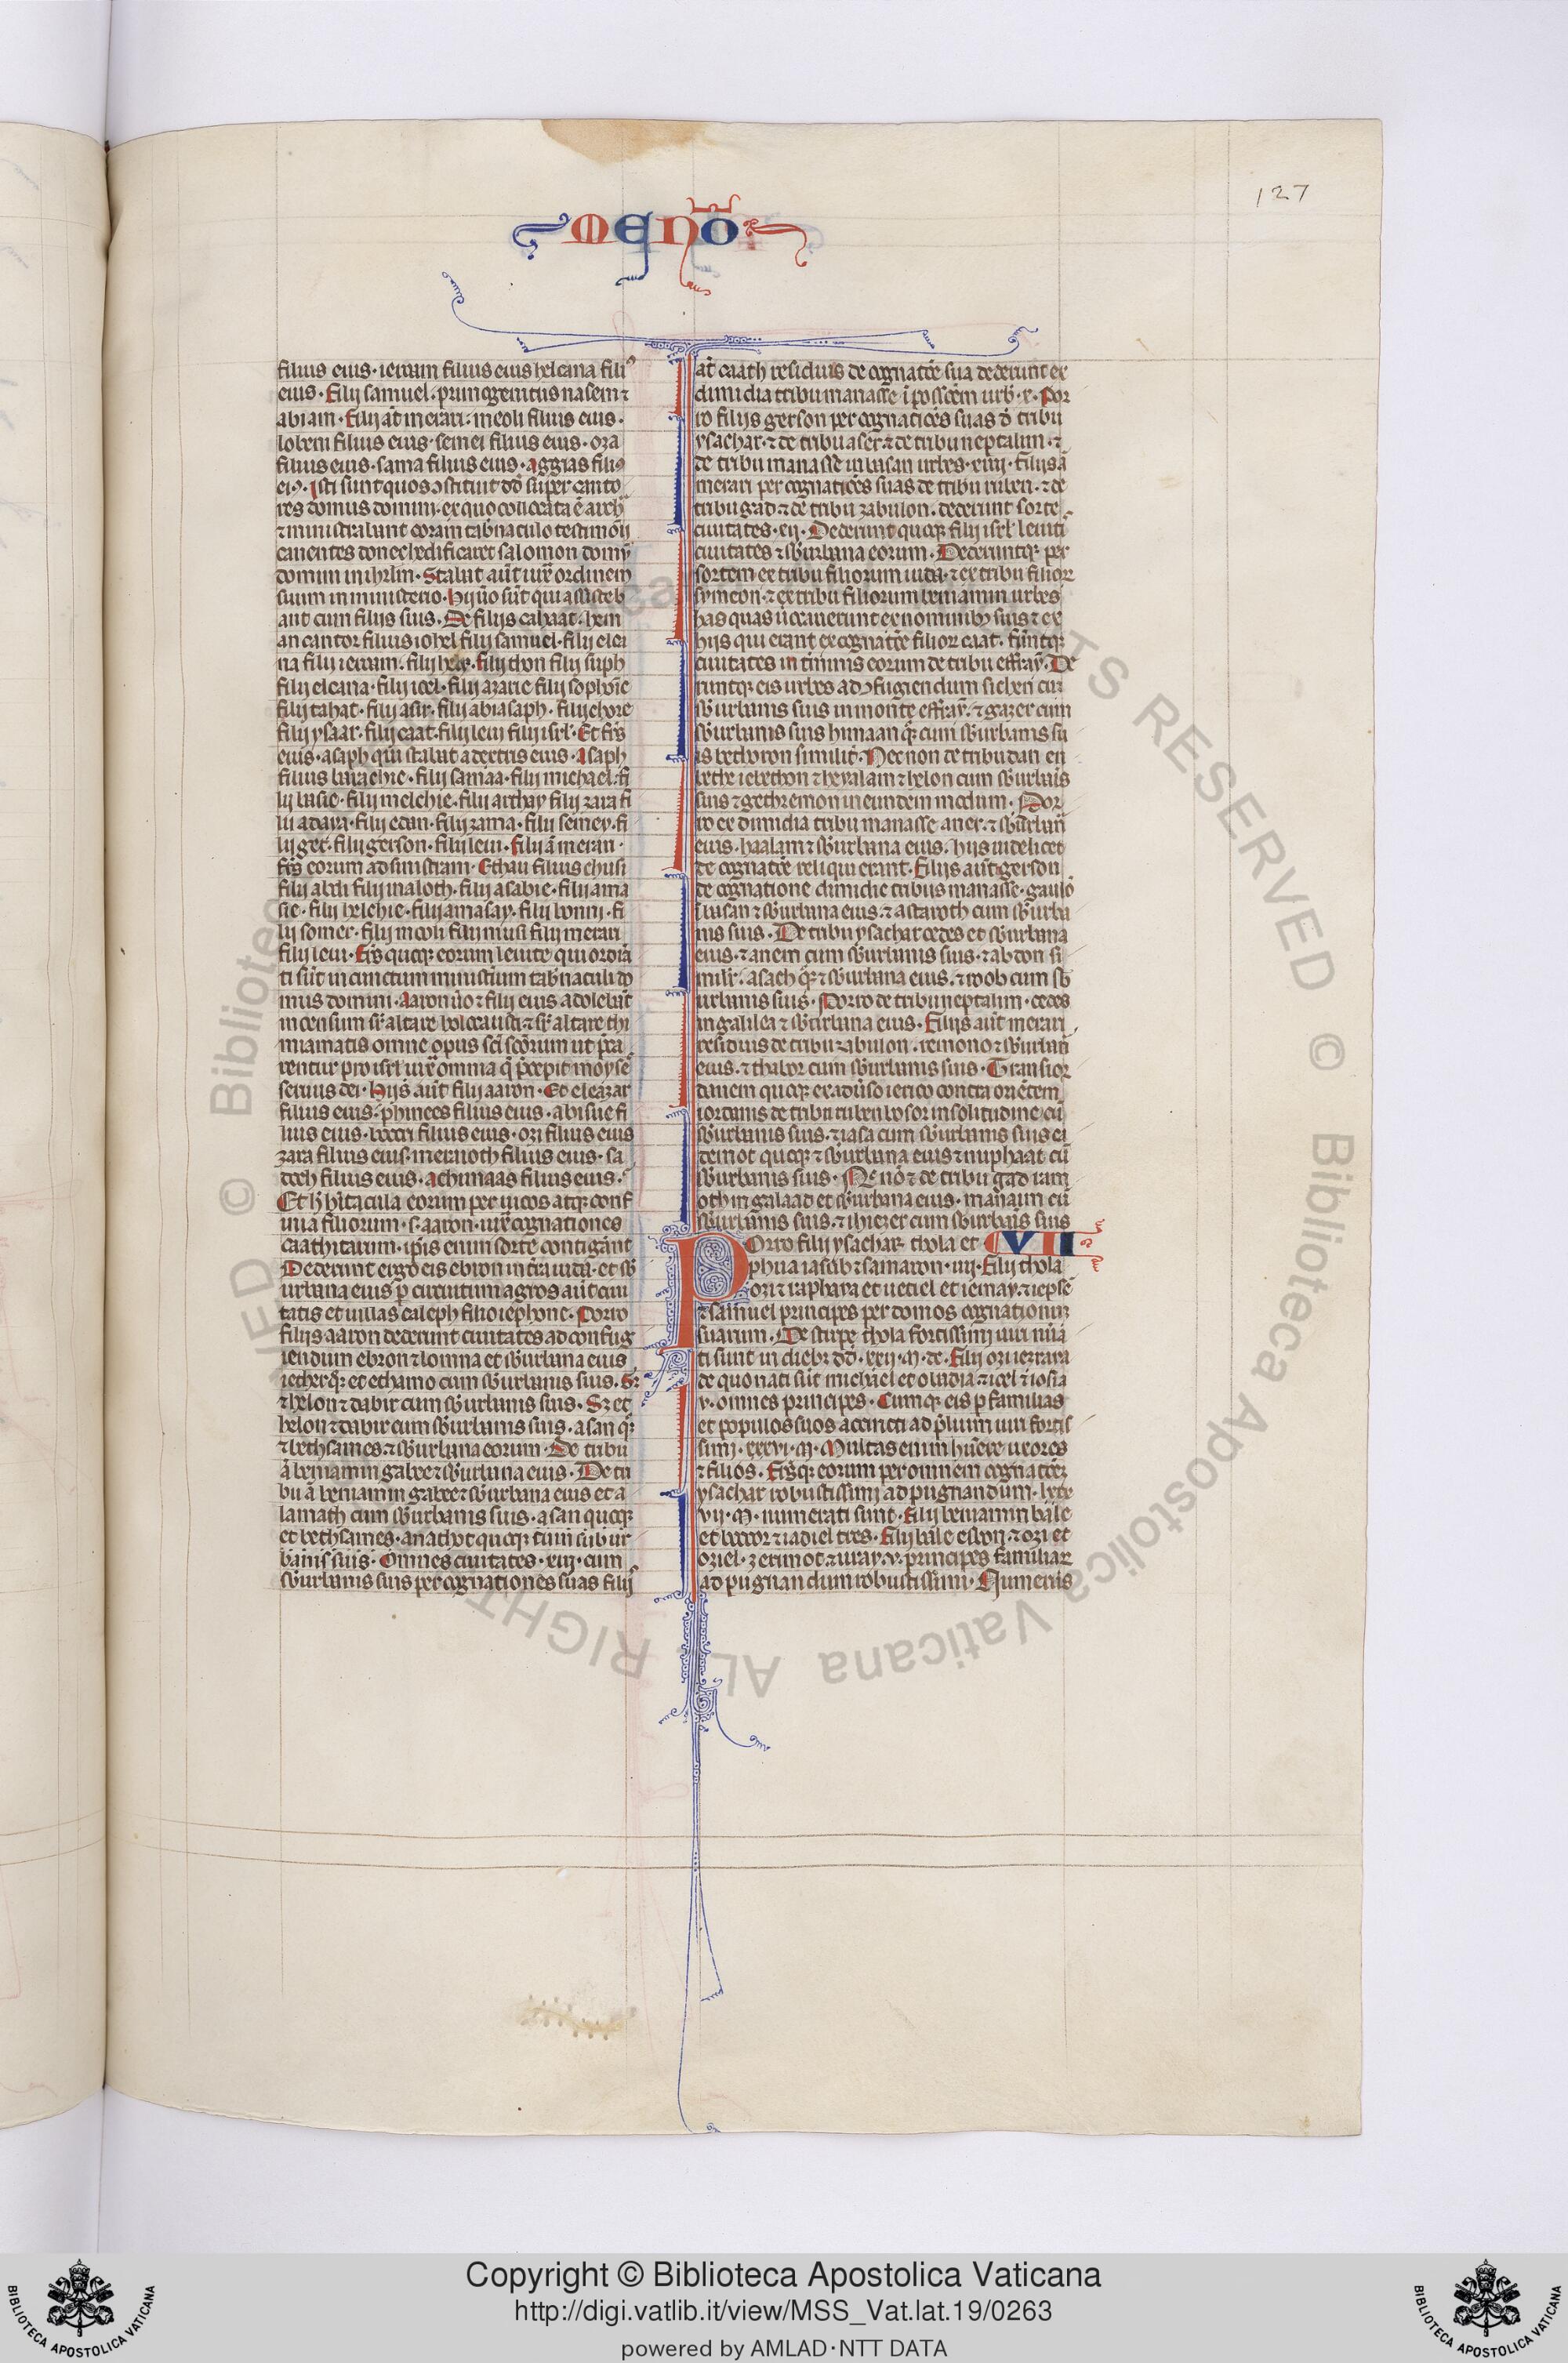 127
MENO
filius eius · ieroam filius eius helcana fili9
eius · Filij samuel · primogenitus nasem ⁊
abiam · Filij at̄ merari · meoli filius eius ·
lobeni filius eius · semei filius eius · oza
filius eius · sama filius eius · aggias fili9
ei9 · Isti sunt quos ↄstituit dd̄ super canto
res domus domini · ex quo collocata ē arch
⁊ ministrabant coram tab̄naculo testimōij
canentes donec hedificaret salomon domū
domini in ihrl̄m · Stabāt aūt iux̄ ordinem
suum in ministerio · Hij ūo sūt qui assisteb
ant cum filijs suis · De filijs cahaat · hem
an cantor filius iohel filij samuel · filij elca
na filij ieroam · filij · filij thon filij suph
filij elcana · filij ioel · filij azarie filij sophoīe
filij tahat · filij asir · filij abiasaph · filij chore
filij ysaar · filij caat · filij leui filij isrl̄ · Et fr̄s
eius · asaph qui stabat a dextris eius · Asaph
filius barachie · filij samaa · filij michael · fi
lij basie · filij melchie · filij athay filij zara fi
lij adaya · filij edan · filij zama · filij semey · fi
lij get · filij gerson · filij leui · Filij ā merari ·
fr̄s eorum ad sinistram · Ethau filius chusi
filij abdi filij maloth · filij asabie · filij ama
sie · filij helchie · filij amasay · filij bonni · fi
lij somer · filij mooli filij musi filij merari
filij leui · Fr̄s quoqȝ eorum leuite qui ordīa
ti sūt in cunctum ministīum tab̄naculi do
mus domini · Aaron ūo ⁊ filij eius adolebāt
incensum sr̄ altare holocausti ⁊ sr̄ altare thi
miamatis omne opus sc̄i sc̄orum ut p̄ca
rentur pro isrl̄ iux̄ omnia q̄ p̄cepit moyse
seruus dei · Hij s̄ aūt filij aaron · Et eleazar
filius eius · phinees filius eius · abisue fi
lius eius · boccci filius eius · ozi filius eius
zara filius eius · meraioth filius eius · sa
doch filius eius · achimaas filius eius ·
Et h̄ hītacula eorum per uicos atqȝ conf
inia filiorum · s · aaron · iux̄ cognationes
caathitarum · ip̄is enim sorte contigāt
Dederunt ergo eis ebron in tr̄a iuda · et sb̄
urbana eius p circuitum agros aūt ciui
tatis et uillas caleph filio iephone · Porro
filijs aaron dederunt ciuitates ad confug
iendum ebron ⁊ lomna et sb̄urbana eius
iether q̄ȝ et esthamo cum sb̄urbanis suis · Sȝ
⁊ helon ⁊ dabir cum sb̄urbanis suis · Sȝ et
helon ⁊ dabir cum sb̄urbanis suis · asan q̄ȝ
⁊ bethsames · ⁊ sb̄urbana eorum · De tribu
ā beniamin gabee ⁊ sb̄urbana eius · De tri
bu ā beniamin gabee ⁊ sb̄urbana eius et a
lamath cum sb̄urbanis suis · asan quoqȝ
et bethsames · anathot quoqȝ cum subur
banis suis · Omnes ciuitates · xiij · cum
sb̄urbanis suis per cognationes suas filij
at̄ caath residuis de cognatōe sua dederunt ex
dimidia tribu manasse ī possc̄em urb · x · Por
ro filijs gerson per cognatiōes suas d̄ tribu
ysachar · ⁊ de tribu aser · ⁊ de tribu neptalim · ⁊
de tribu manasse in basan urbes · xiij · Filijs ā
merari per cognatiōes suas de tribu ruben · ⁊ de
tribu gad ⁊ de tribu zabulon · dederunt sorte
ciuitates · xij · Dederunt quoqȝ filij isrl̄ leuiti
ciuitates ⁊ sb̄urbana eorum · Dederuntqȝ per
sortem ex tribu filiorum iuda · ⁊ ex tribu filior
symeon · ⁊ ex tribu filiorum beniamin urbes
has quas uocauerunt ex nominibȝ suis ⁊ ex
hijs qui erant ex cognatōe filior caat · fūntqȝ
ciuitates in t̄minis eorum de tribu effraȳ · De
runtqȝ eis urbes ad ↄfugiendum sichen cū
sb̄urbanis suis in monte effraȳ · ⁊ gazer cum
sb̄urbanis suis hinaan q̄ȝ cum sb̄urbanis su
is bethoron similit̄ · Necnon de tribu dan en
bethe iebethon ⁊ heyalam ⁊ helon cum sb̄urbāis
suis ⁊ gethremon in eundem modum · Por
ro ex dimidia tribu manasse aner · ⁊ sb̄urbāa
eius · baalam ⁊ sb̄urbana eius · hijs uidelicet
de cognatōe reliqui erant · Filijs aūt gerson
de cognatione dimidie tribus manasse · gaulō
ī basan ⁊ sb̄urbana eius · ⁊ astaroth cum sb̄urba
nis suis · De tribu ysachar cedes et sb̄urbana
eius · ⁊ anem cum sb̄urbanis suis · ⁊ abdon si
milr̄ · asach q̄ȝ ⁊ sb̄urbana eius · ⁊ roob cum sb̄
urbanis suis · Porro de tribu neptalim · cedes
in galilea ⁊ sb̄urbana eius · Filijs aūt merari
residuis de tribu zabulon · remono ⁊ sb̄urbāa
eius · ⁊ thabor cum sb̄urbanis suis · Transior
danem quoqȝ ex adūso ierico contra oriētem
iordanis de tribu ruben bosor in solitudine cū
sb̄urbanis suis · ⁊ iasa cum sb̄urbanis suis ci
demot quoqȝ ⁊ sb̄urbana eius ⁊ miphaat cū
sb̄urbanis suis · Nc̄nō ⁊ de tribu gad ram
oth in galaad et sb̄urbana eius · manaim cū
sb̄urbanis suis · ⁊ ihiezer cum sb̄urbāis suis
Porro filij ysachar · thola et C VII
phua iasub ⁊ samaron · iiij · Filij thola
ozi ⁊ raphara et ueriel et iemay · ⁊ iepse
⁊ samuel principes per domos cognationum
suarum · De stirpe thola fortissimi uiri nūa
ti sunt in diebȝ dd̄ · xxij · M · dc · Filij ozi iezrara
de quo nati sūt michael et obadia ⁊ ioel ⁊ iosia
v · omnes principes · Cumqȝ eis p familias
et populos suos accincti ad p̄lium uiri fortis
simi · xxxvi · M · Multas enim h̄uere uxores
⁊ filios · Fr̄sqȝ eorum per omnem cognatōeȝ
ysachar robustissimi ad pugnandum · lxxx
vii · M · numerati sunt · Filij beniamin bale
et bocor ⁊ iadiel tres · Filij bale esbon · ⁊ ozi et
oziel · zerimot ⁊ uray · v · principes familiar
ad pugnandum robustissimi · Numerus
© Biblioteca Apostolica Vaticana ALL RIGHTS RESERVED
Copyright © Biblioteca Apostolica Vaticana
http://digi.vatlib.it/view/MSS_Vat.lat.19/0263
powered by AMLAD·NTT DATA
BIBLIOTECA APOSTOLICA VATICANA
BIBLIOTECA APOSTOLICA VATICANA